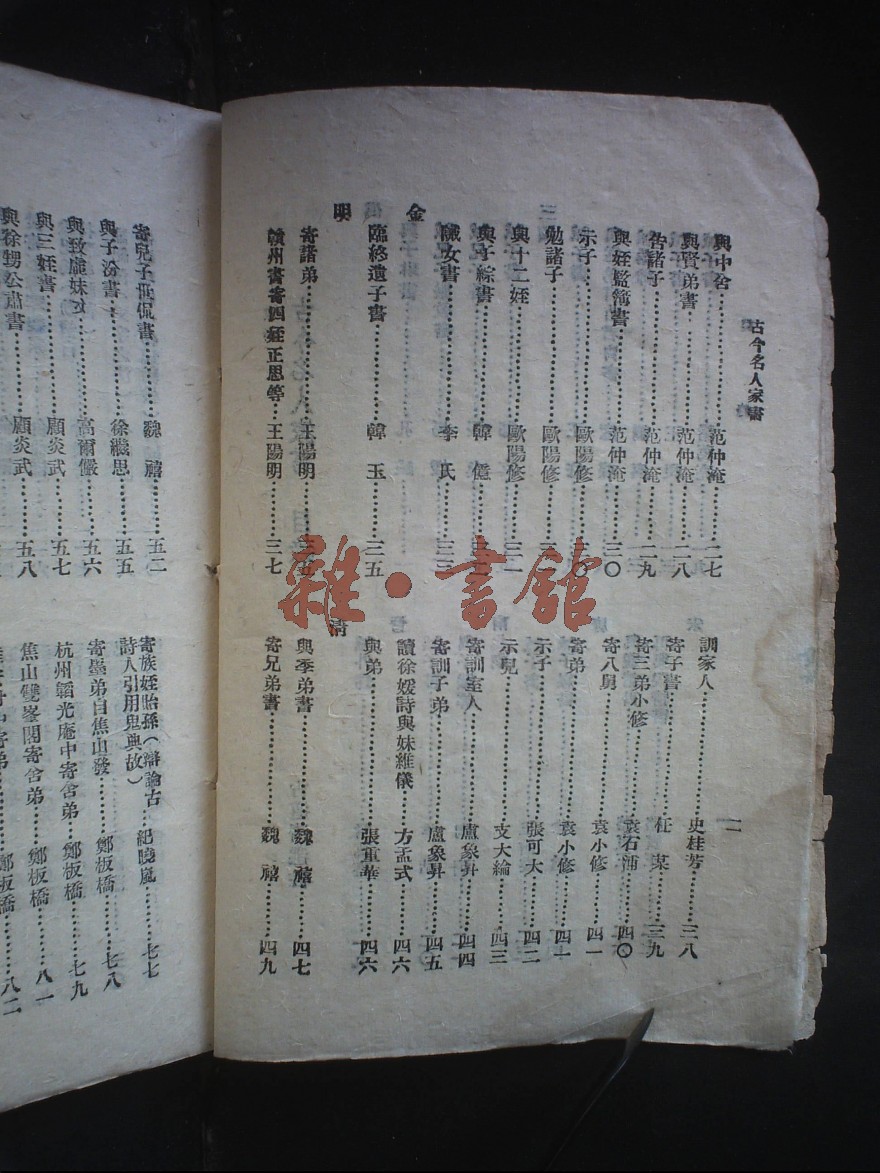 古今名人家書
二
與中舍……范仲淹……二七
與賢弟書……范仲淹……二八
告諸子……范仲淹……二九
與姪監簿書……范仲淹……三〇
示子……歐陽修……三〇
勉諸子……歐陽修……
與十二姪……歐陽修……三一
與子綜書……韓億……
誡女書……李氏……三三
金
臨終遺子書……韓玉……三五
明
寄諸弟……王陽明……
贛州書寄四姪正思等……王陽明……三七
訓家人……史桂芳……三八
寄子書……任某……三九
寄三弟小修……袁石浦……四〇
寄八舅……袁小修……四一
寄弟……袁小修……四一
示子……張可大……四二
示兒……支大綸……四三
寄訓室人……盧象昇……四四
寄訓子弟……盧象昇……四五
讀徐媛詩與妹維儀……方孟式……四六
與弟……張重華……四六
清
與季弟書……魏禧……四七
寄兄弟書……魏禧……四九
寄兒子世侃書……魏禧……五二
與子汾書……徐繼思……五五
與致虛妹……高爾儼……五六
與三姪書……顧炎武……五七
與徐甥公肅書……顧炎武……五八
寄族姪貽孫(辯論古詩人引用鬼典故)……紀曉嵐……七七
寄墨弟自焦山發……鄭板橋……七八
杭州韜光庵中寄舍弟……鄭板橋……七九
焦山雙峯閣寄舍弟……鄭板橋……八一
鄭板橋……八二
雜·書館